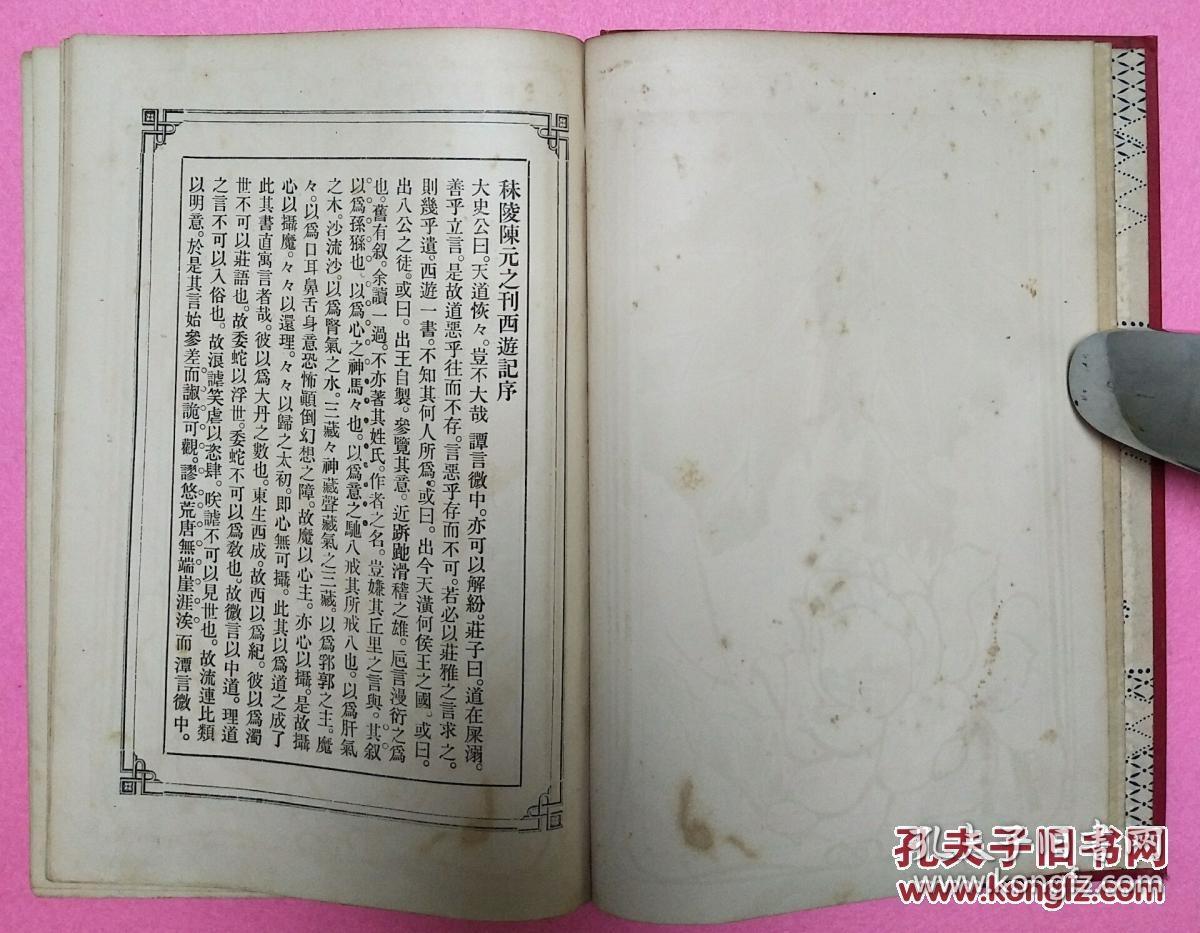 秣陵陳元之刊西遊記序
大史公曰。天道恢々。豈不大哉 譚言微中。亦可以解紛。莊子曰。道在屎溺。
善乎立言。是故道惡乎往而不存。言惡乎存而不可。若必以莊雅之言求之。
則幾乎遺。西遊一書。不知其何人所爲。或曰。出今天潢何侯王之國。或曰。
出八公之徒。或曰。出王自製。參覽其意。近跅跎滑稽之雄。巵言漫衍之爲
也。舊有叙。余讀一過。不亦著其姓氏。作者之名。豈嫌其丘里之言與。其叙
以爲孫猻也。以爲心之神馬々也。以爲意之馳八戒其所戒八也。以爲肝氣
之木。沙流沙。以爲腎氣之水。三藏々神藏聲藏氣之三藏。以爲郛郭之主。魔
々。以爲口耳鼻舌身意恐怖顚倒幻想之障。故魔以心主。亦心以攝。是故攝
心以攝魔。々々以還理。々々以歸之太初。即心無可攝。此其以爲道之成了
此其書直寓言者哉。彼以爲大丹之數也。東生西成。故西以爲紀。彼以爲濁
世不可以莊語也。故委蛇以浮世。委蛇不可以爲敎也。故微言以中道。理道
之言不可以入俗也。故浪謔笑虐以恣肆。咲謔不可以見世也。故流連比類
以明意。於是其言始參差而諔詭可觀。謬悠荒唐無端崖涯涘而潭言微中。
孔夫子旧书网
www.kongfz.com